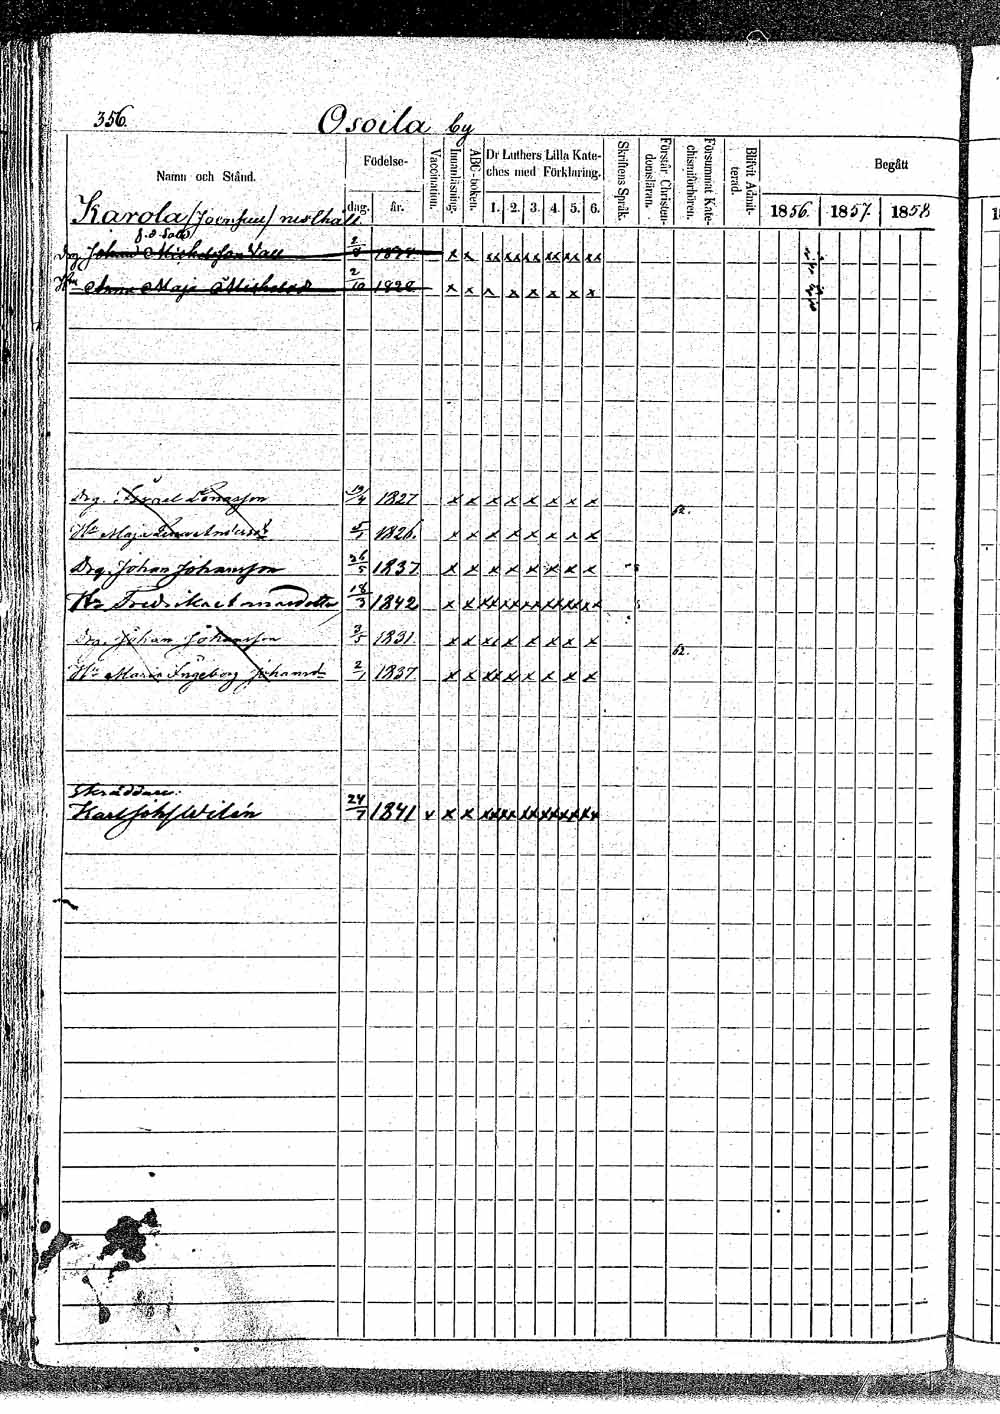 356.
Osoila by
Namn och Stånd.
Födelse-
dag. år.
Vaccination.
Innanläsning.
ABC-boken.
Dr Luthers Lilla Kate-
ches med Förklaring.
1. 2. 3. 4. 5. 6.
Skriftens Språk.
Förstår Christen-
domsläran.
Försummat Kate-
chismiförhören.
Blifvit Admit-
terad.
Begått
1856. 1857. 1858
Karola
f.d. Sold
Drg Johan Michelsson Vall 1828. x x xx xx xx xx xx xx
Hu Anna Maja Michelsd 2/10 1828 x x x x x x x x
Drg. Israel Jonasson 19/4 1827 x x x x x x x x 62.
Hu Maja Lena Andersd 5/1 1826. x x x x x x x x
Drg. Johan Johansson 26/5 1837 x x x x x x x x
Hu Fredrika 18/3 1842 x x xx xx xx xx xx xx
Drg. Johan Johansson 3/5 1831 x x xx x x x x x 62.
Hu Maria Ingeborg Johansd 2/1 1837 x x xx x x x x x
Skräddare:
Karl Joh Wilén 24/7 1841 v x x xx xx xx xx xx xx